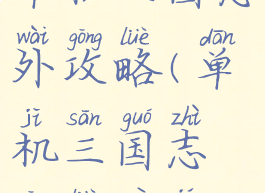 wài gōng lüè dān
外攻略(单
jī sān guó zhì
机三国志